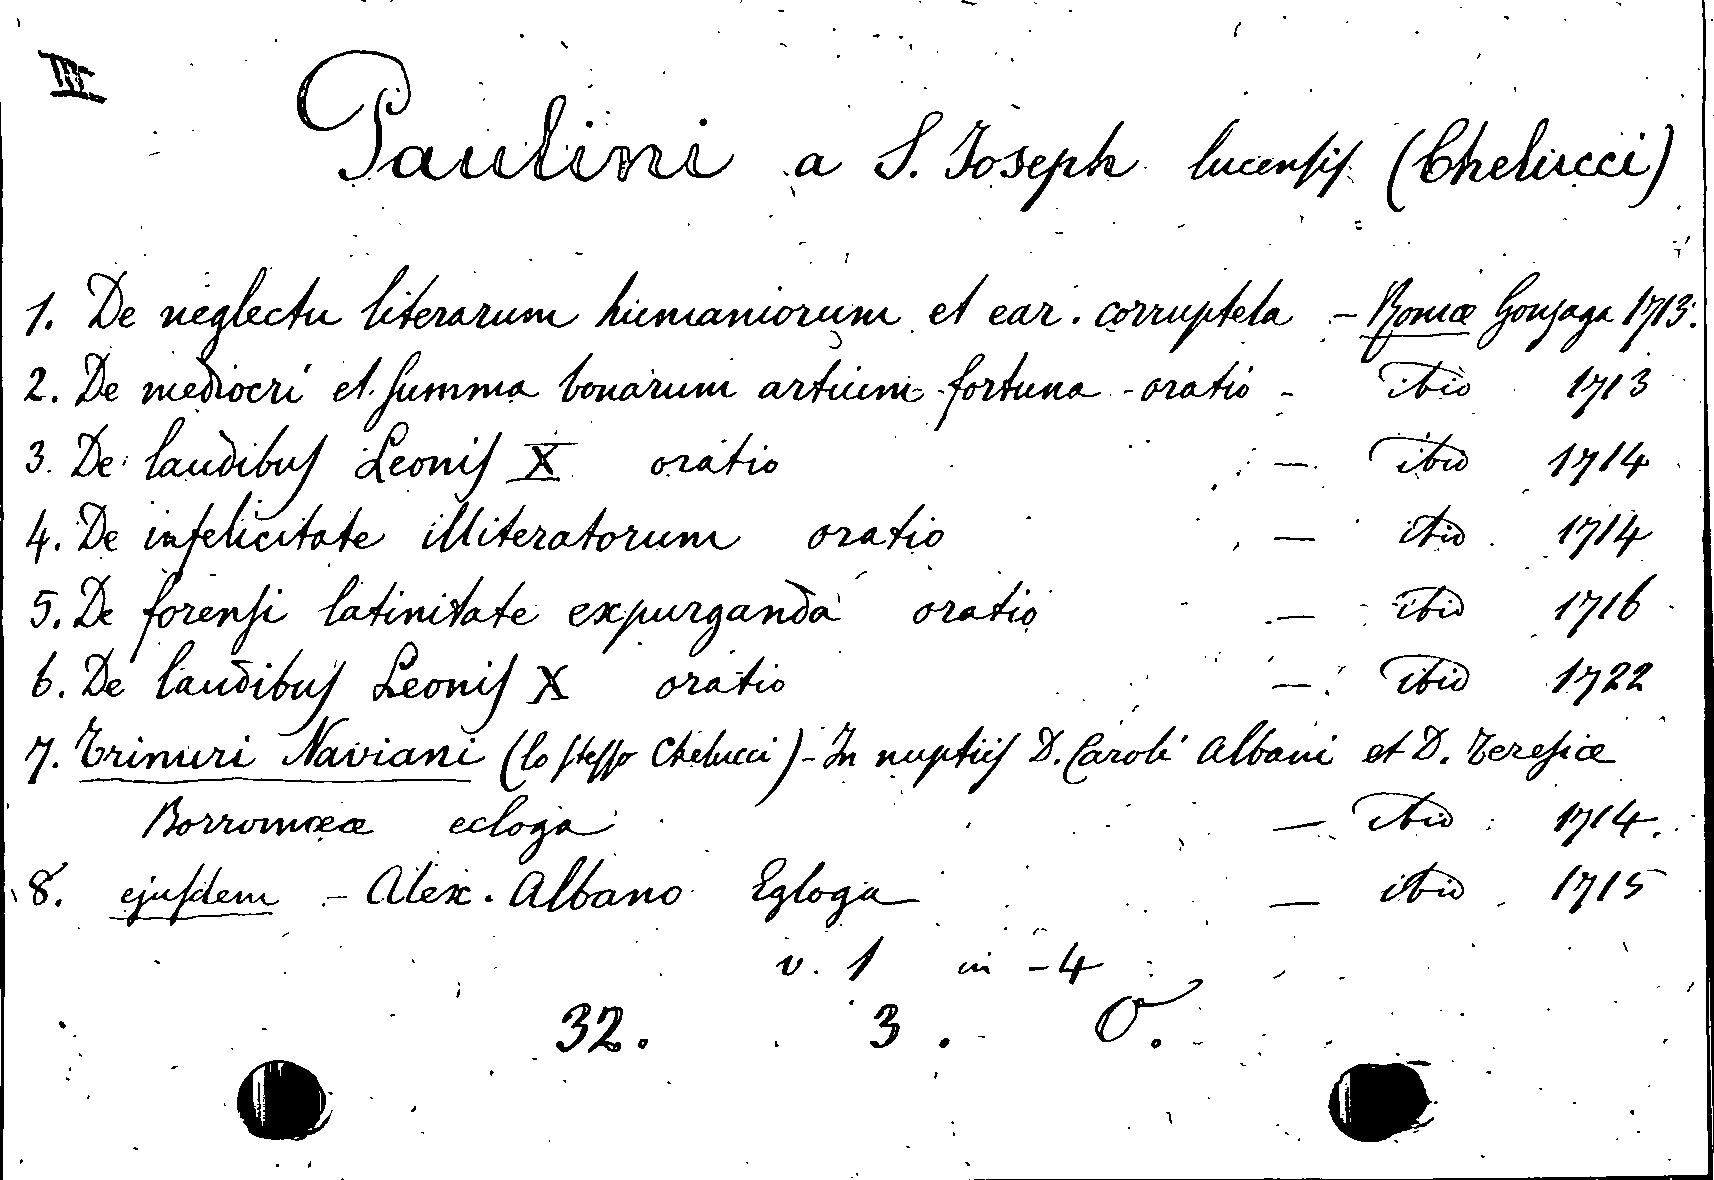 III
Paulini a S. Joseph lucensis (Chelucci)
1. De neglectu literarum humaniorum et ear. corruptela - Romæ Gonzaga 1713.
2. De mediocri et summa bonarum artium fortuna - oratio - ibid 1713
3. De laudibus Leonis X oratio - ibid 1714
4. De infelicitate illiteratorum oratio - ibid 1714
5. De forensi latinitate expurganda oratio - ibid 1716
6. De laudibus Leonis X oratio - ibid 1722
7. Trinuri Naviani (lo stesso Chelucci) - In nuptiis D. Caroli Albani et D. Teresiæ
Borromææ ecloga - ibid 1714.
8. ejusdem - Alex. Albano Egloga - ibid 1715
v. 1 in -4
32. 3. O.